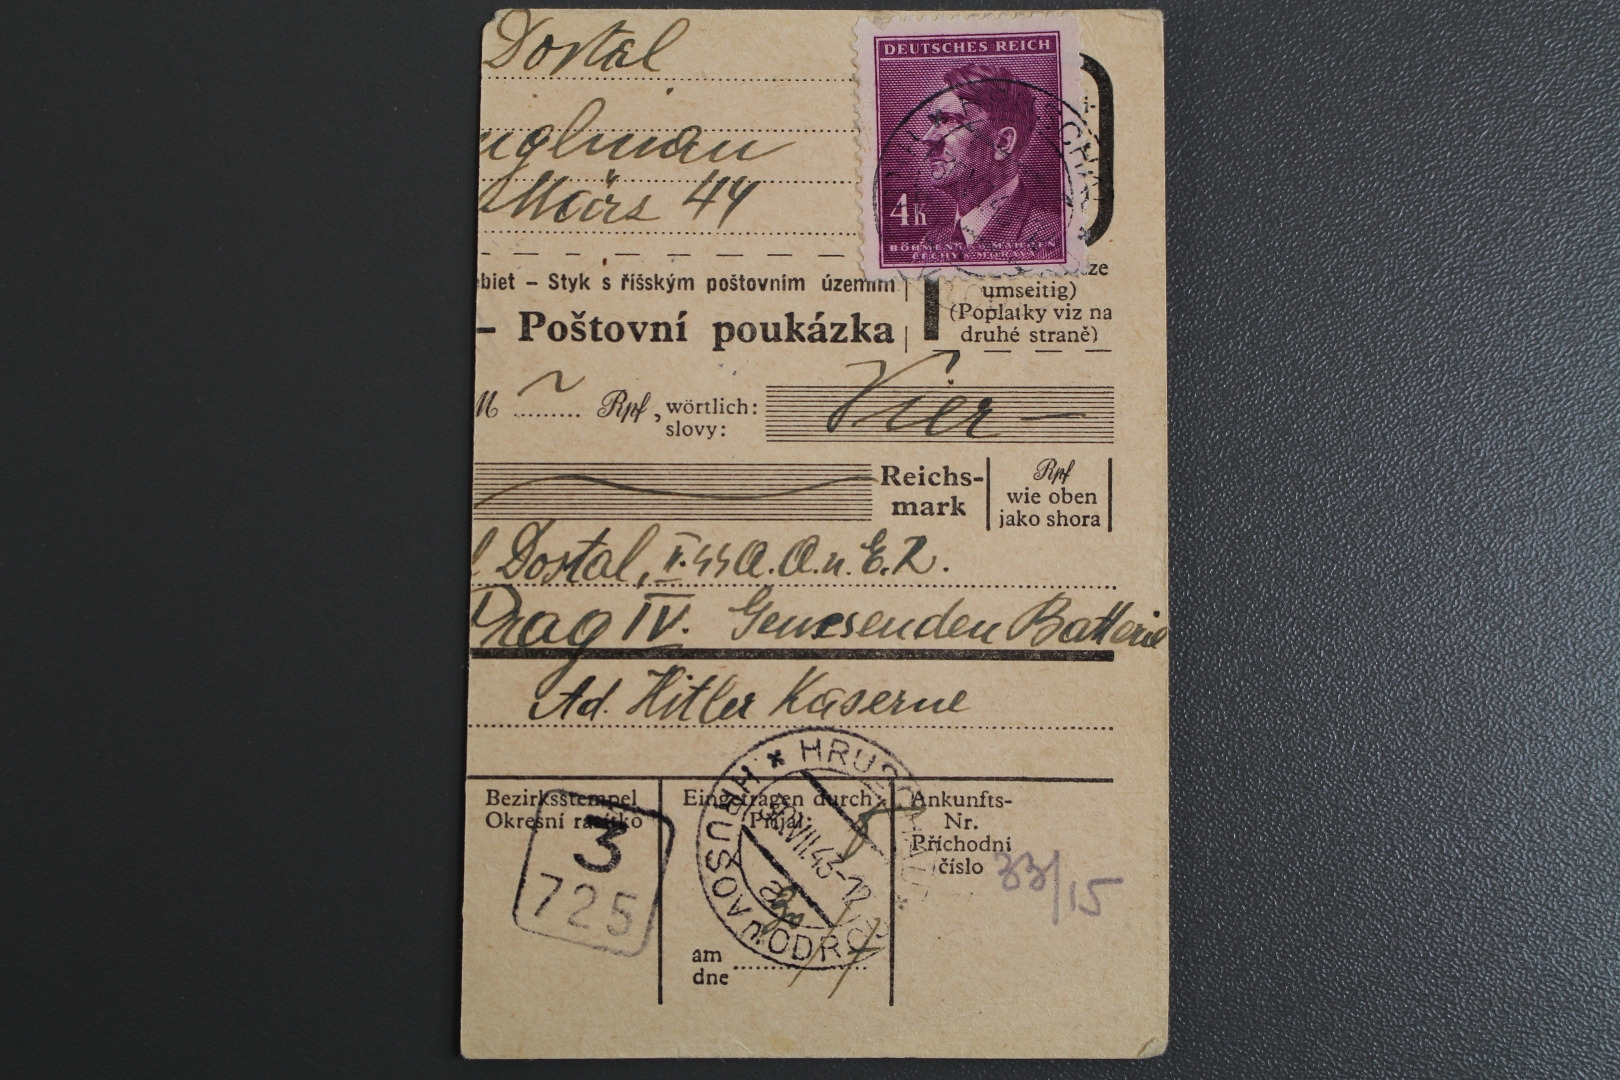 Dostal
DEUTSCHES REICH
4K
BÖHMEN U. MÄHREN
ČECHY A MORAVA
März 44
biet – Styk s říšským poštovním územím
umseitig)
– Poštovní poukázka
(Poplatky viz na
druhé straně)
Rpf, wörtlich:
slovy:
Vier –
Reichs-
mark
Rpf
wie oben
jako shora
Dostal, I. SS A. A. u. E. R.
Prag IV. Genesenden Batterie
Ad. Hitler Kaserne
Bezirksstempel
Okresní razítko
3
725
Eingetragen durch:
Přijal:
HRUSCHAU
HRUŠOV n. ODROU
VII.43-12
am
dne
Ankunfts-
Nr.
Příchodní
číslo
33/15